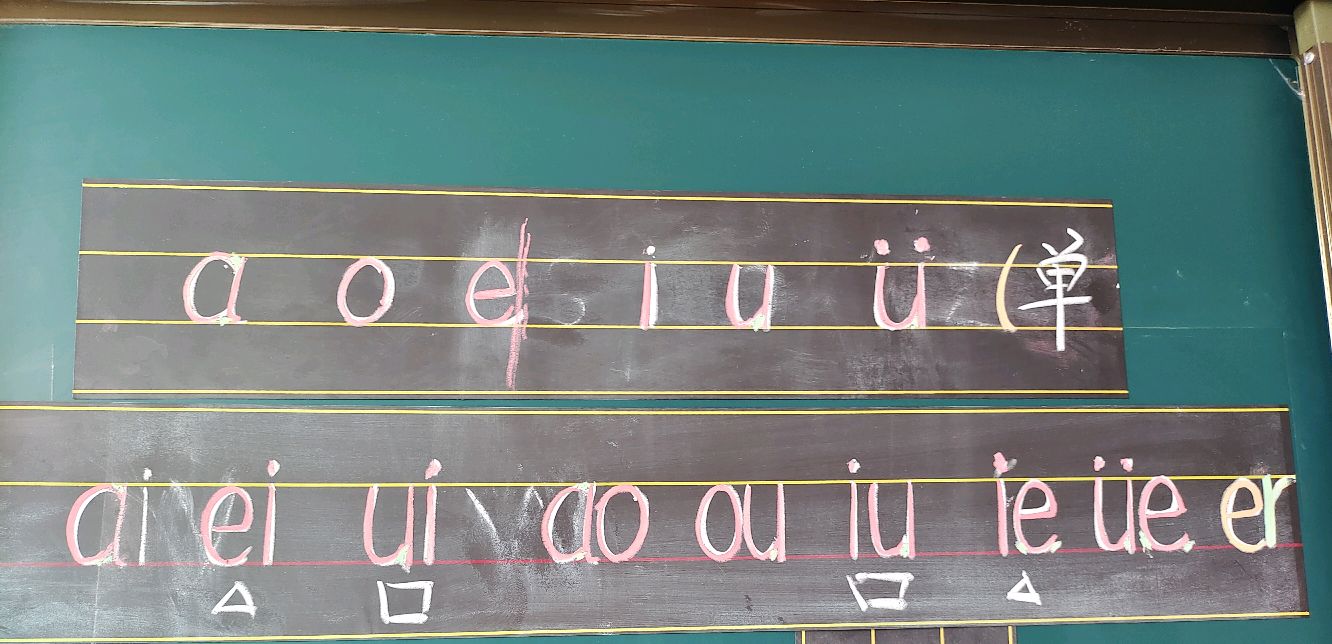 a o e i u ü (单
ai ei ui ao ou iu ie üe er